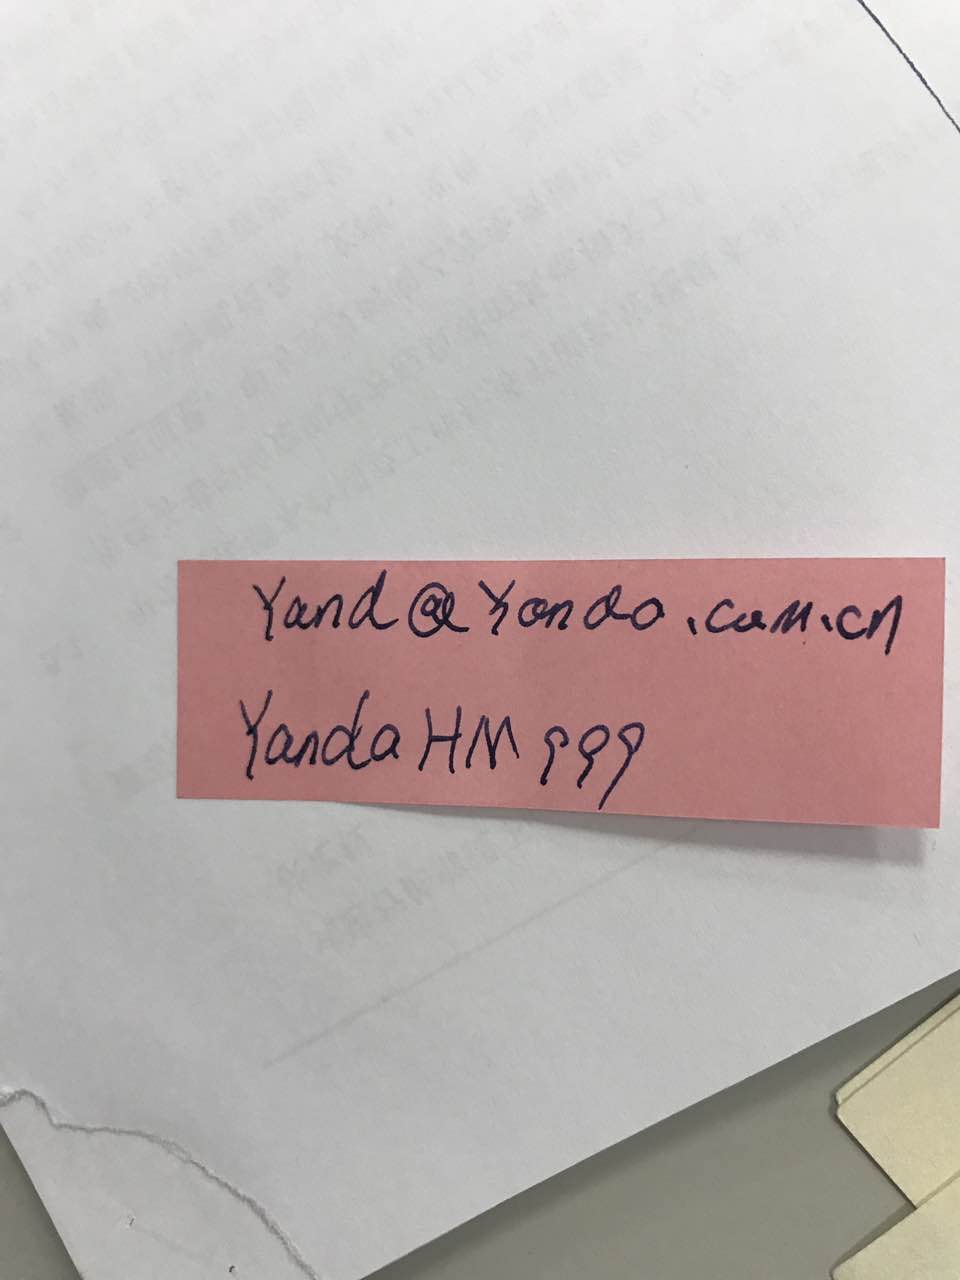 Yand@Yanda.com.cn
YandaHM999